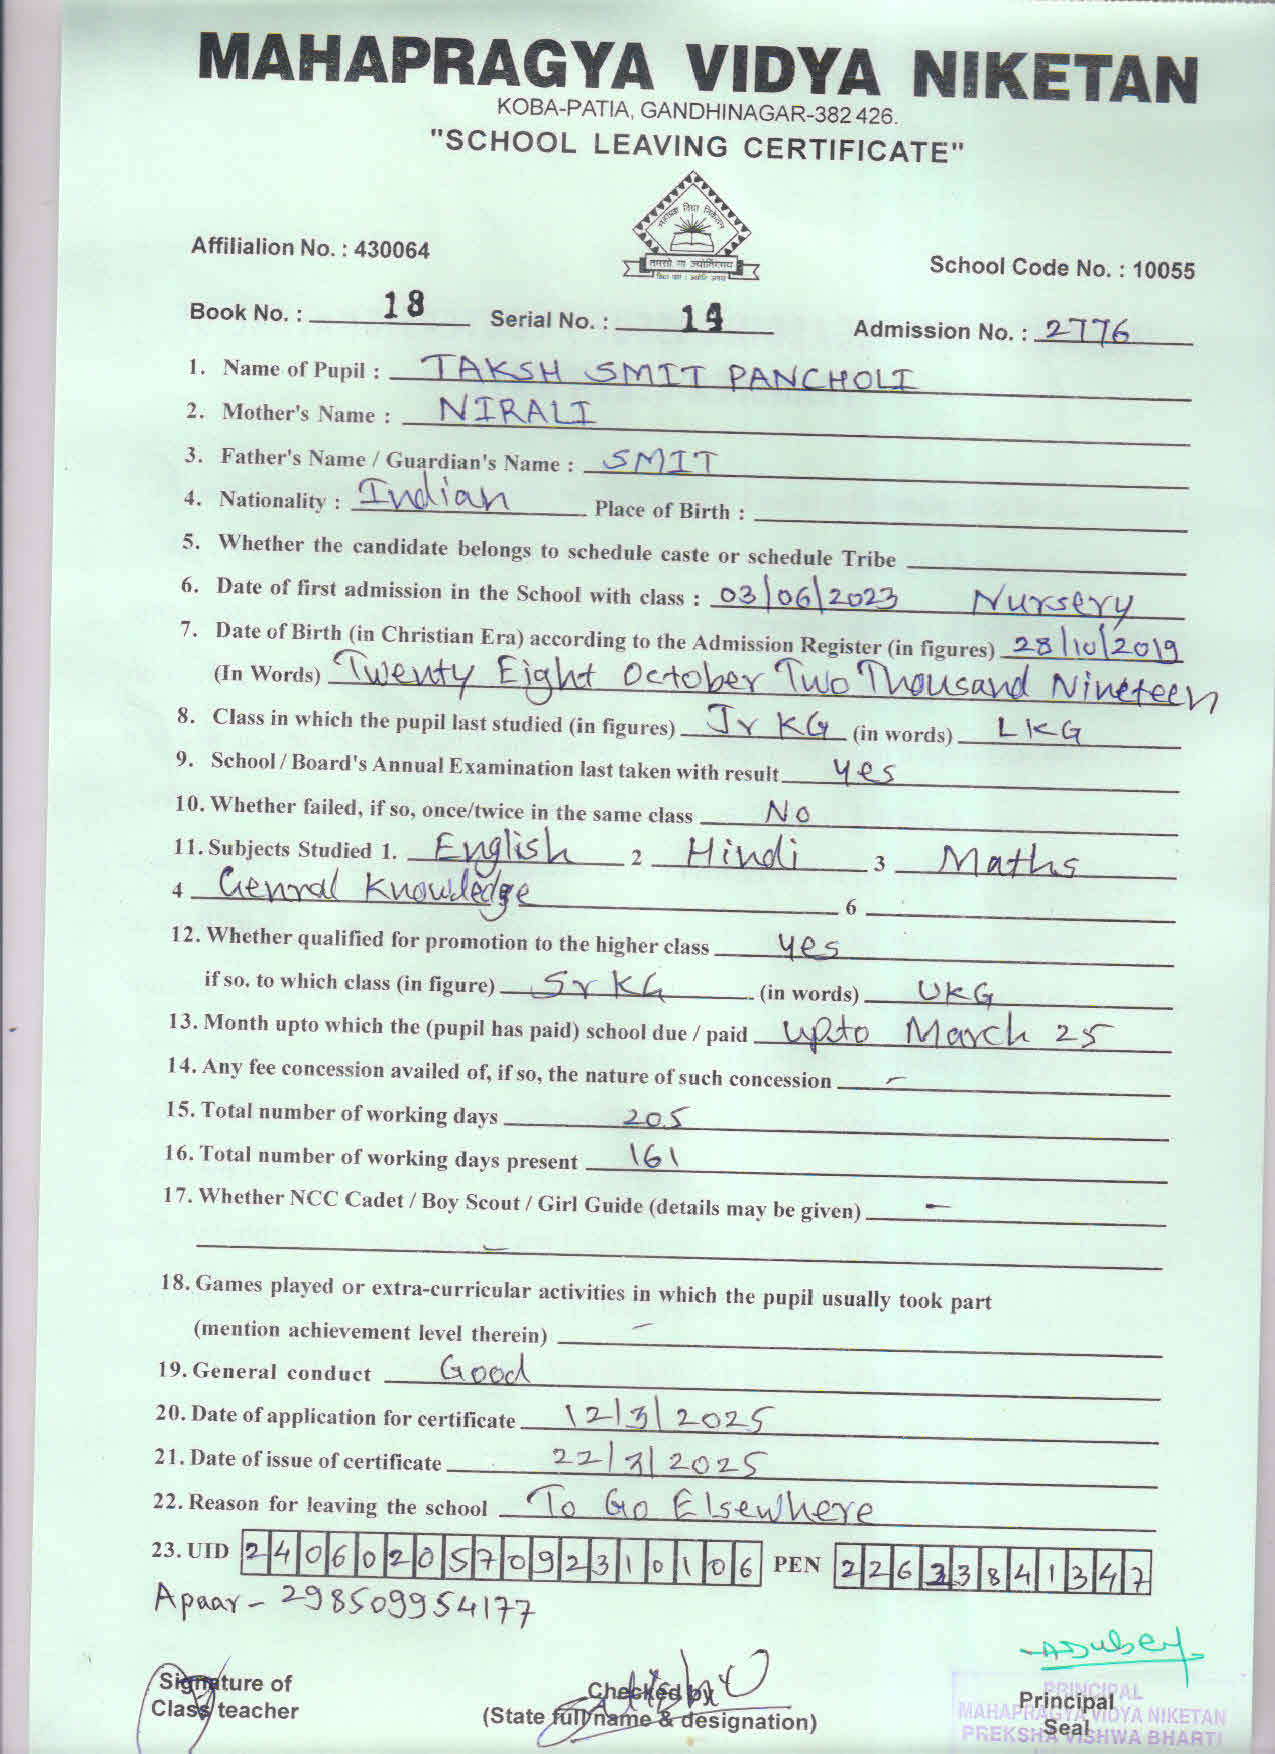 MAHAPRAGYA VIDYA NIKETAN
KOBA-PATIA, GANDHINAGAR-382 426.
"SCHOOL LEAVING CERTIFICATE"
महाप्रज्ञ विद्या निकेतन
तमसो मा ज्योतिर्गमय
Affilialion No. : 430064
School Code No. : 10055
Book No. : 18 Serial No. : 14 Admission No. : 2776
1. Name of Pupil : TAKSH SMIT PANCHOLI
2. Mother's Name : NIRALI
3. Father's Name / Guardian's Name : SMIT
4. Nationality : Indian Place of Birth :
5. Whether the candidate belongs to schedule caste or schedule Tribe
6. Date of first admission in the School with class : 03/06/2023 Nursery
7. Date of Birth (in Christian Era) according to the Admission Register (in figures) 28/10/2019
(In Words) Twenty Eight October Two Thousand Nineteen
8. Class in which the pupil last studied (in figures) Jr KG (in words) LKG
9. School / Board's Annual Examination last taken with result yes
10. Whether failed, if so, once/twice in the same class No
11. Subjects Studied 1. English 2 Hindi 3 Maths
4 Genral Knowledge 6
12. Whether qualified for promotion to the higher class yes
if so, to which class (in figure) Sr KG (in words) UKG
13. Month upto which the (pupil has paid) school due / paid upto March 25
14. Any fee concession availed of, if so, the nature of such concession -
15. Total number of working days 205
16. Total number of working days present 161
17. Whether NCC Cadet / Boy Scout / Girl Guide (details may be given) -
-
18. Games played or extra-curricular activities in which the pupil usually took part
(mention achievement level therein) -
19. General conduct Good
20. Date of application for certificate 12/3/2025
21. Date of issue of certificate 22/3/2025
22. Reason for leaving the school To Go Elsewhere
23. UID 240602057092310106 PEN 22633841347
Apaar - 298509954177
ADubey
Signature of
Class teacher
Checked by
(State full name & designation)
Principal
Seal
PRINCIPAL
MAHAPRAGYA VIDYA NIKETAN
PREKSHA VISHWA BHARTI